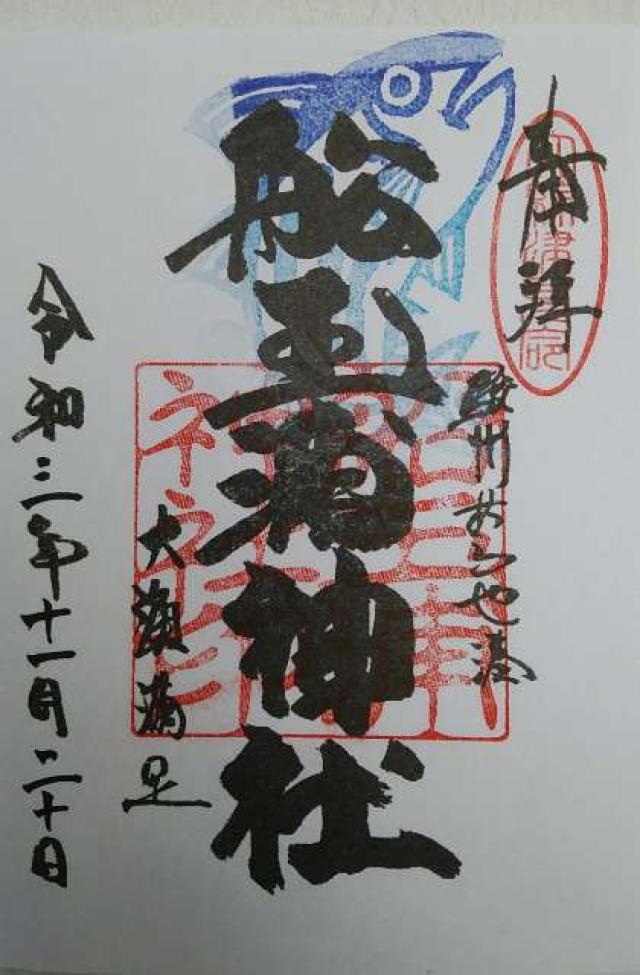 奉拝
駿州
港
船玉浦神社
大漁満足
令和三年十一月二十日